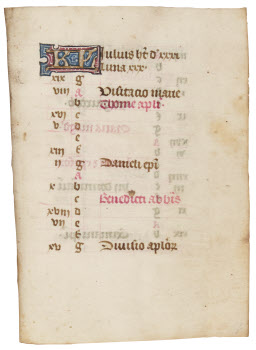 KL Iulius ht d' xxxi
luna xxx.
xix g
viii A Visitacio marie
b Thome apli
xvi c
v d
e
xiii f
ii g Danieli epi
A
x b
c Benedicti abbis
xviii d
vii e
f
xv g Divisio aplor